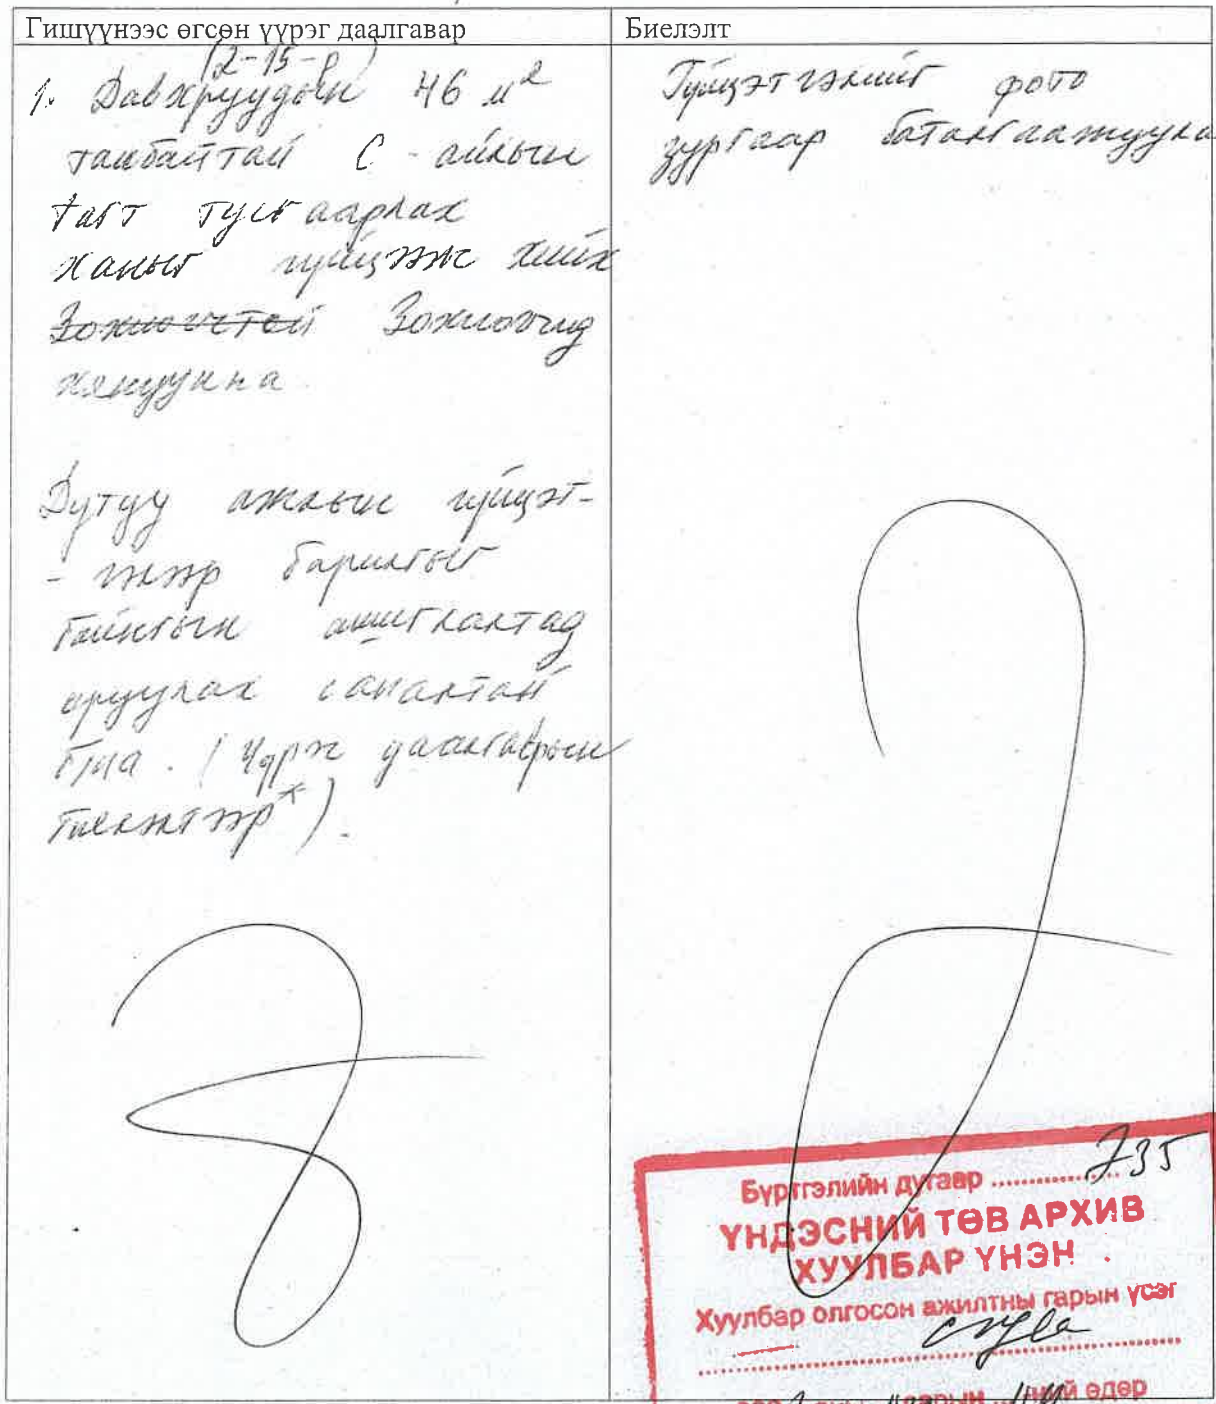 Гишүүнээс өгсөн үүрэг даалгавар
(2-15-р)
1. Давхруудын 46 м²
талбайтай С - айлын
тагт тусгаарлах
ханыг гүйцээж хийх
Зохиогчтой Зохиогчид
хянуулна
Дутуу ажлын гүйцэт-
- гэлээр барилгыг
байнгын ашиглалтад
оруулах саналтай
б/на. (Үүрэг даалгаврын
биелэлтээр*).
Биелэлт
Гүйцэтгэлийг фото
зургаар баталгаажуулна
Бүртгэлийн дугаар .................. 735
ҮНДЭСНИЙ ТӨВ АРХИВ
ХУУЛБАР ҮНЭН
Хуулбар олгосон ажилтны гарын үсэг
ний өдөр